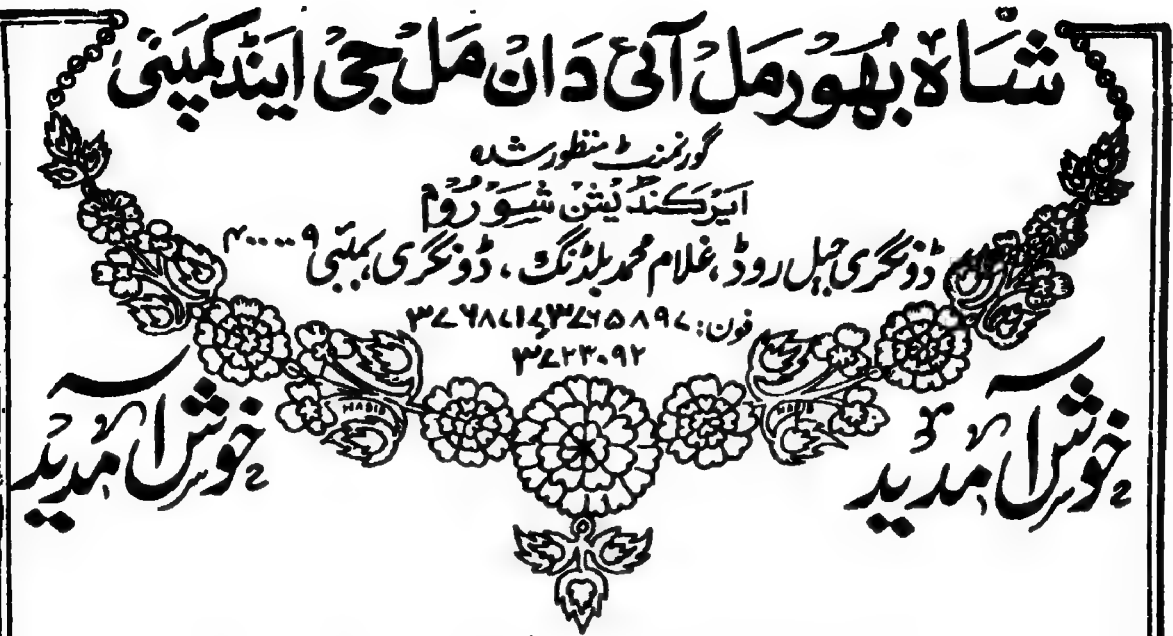 شاہ بھورمل آئی دان مل جی اینڈ کمپنی
گورنمنٹ منظور شدہ
ایرکنڈیشن شوروم
ڈونگری جیل روڈ، غلام محمد بلڈنگ، ڈونگری، بمبئی ۴۰۰۰۰۹
فون: ۳۷۶۵۸۹۷، ۳۷۶۸۷۱۷
۳۷۲۳۰۹۲
خوش آمدید
خوش آمدید
HABIB
HABIB